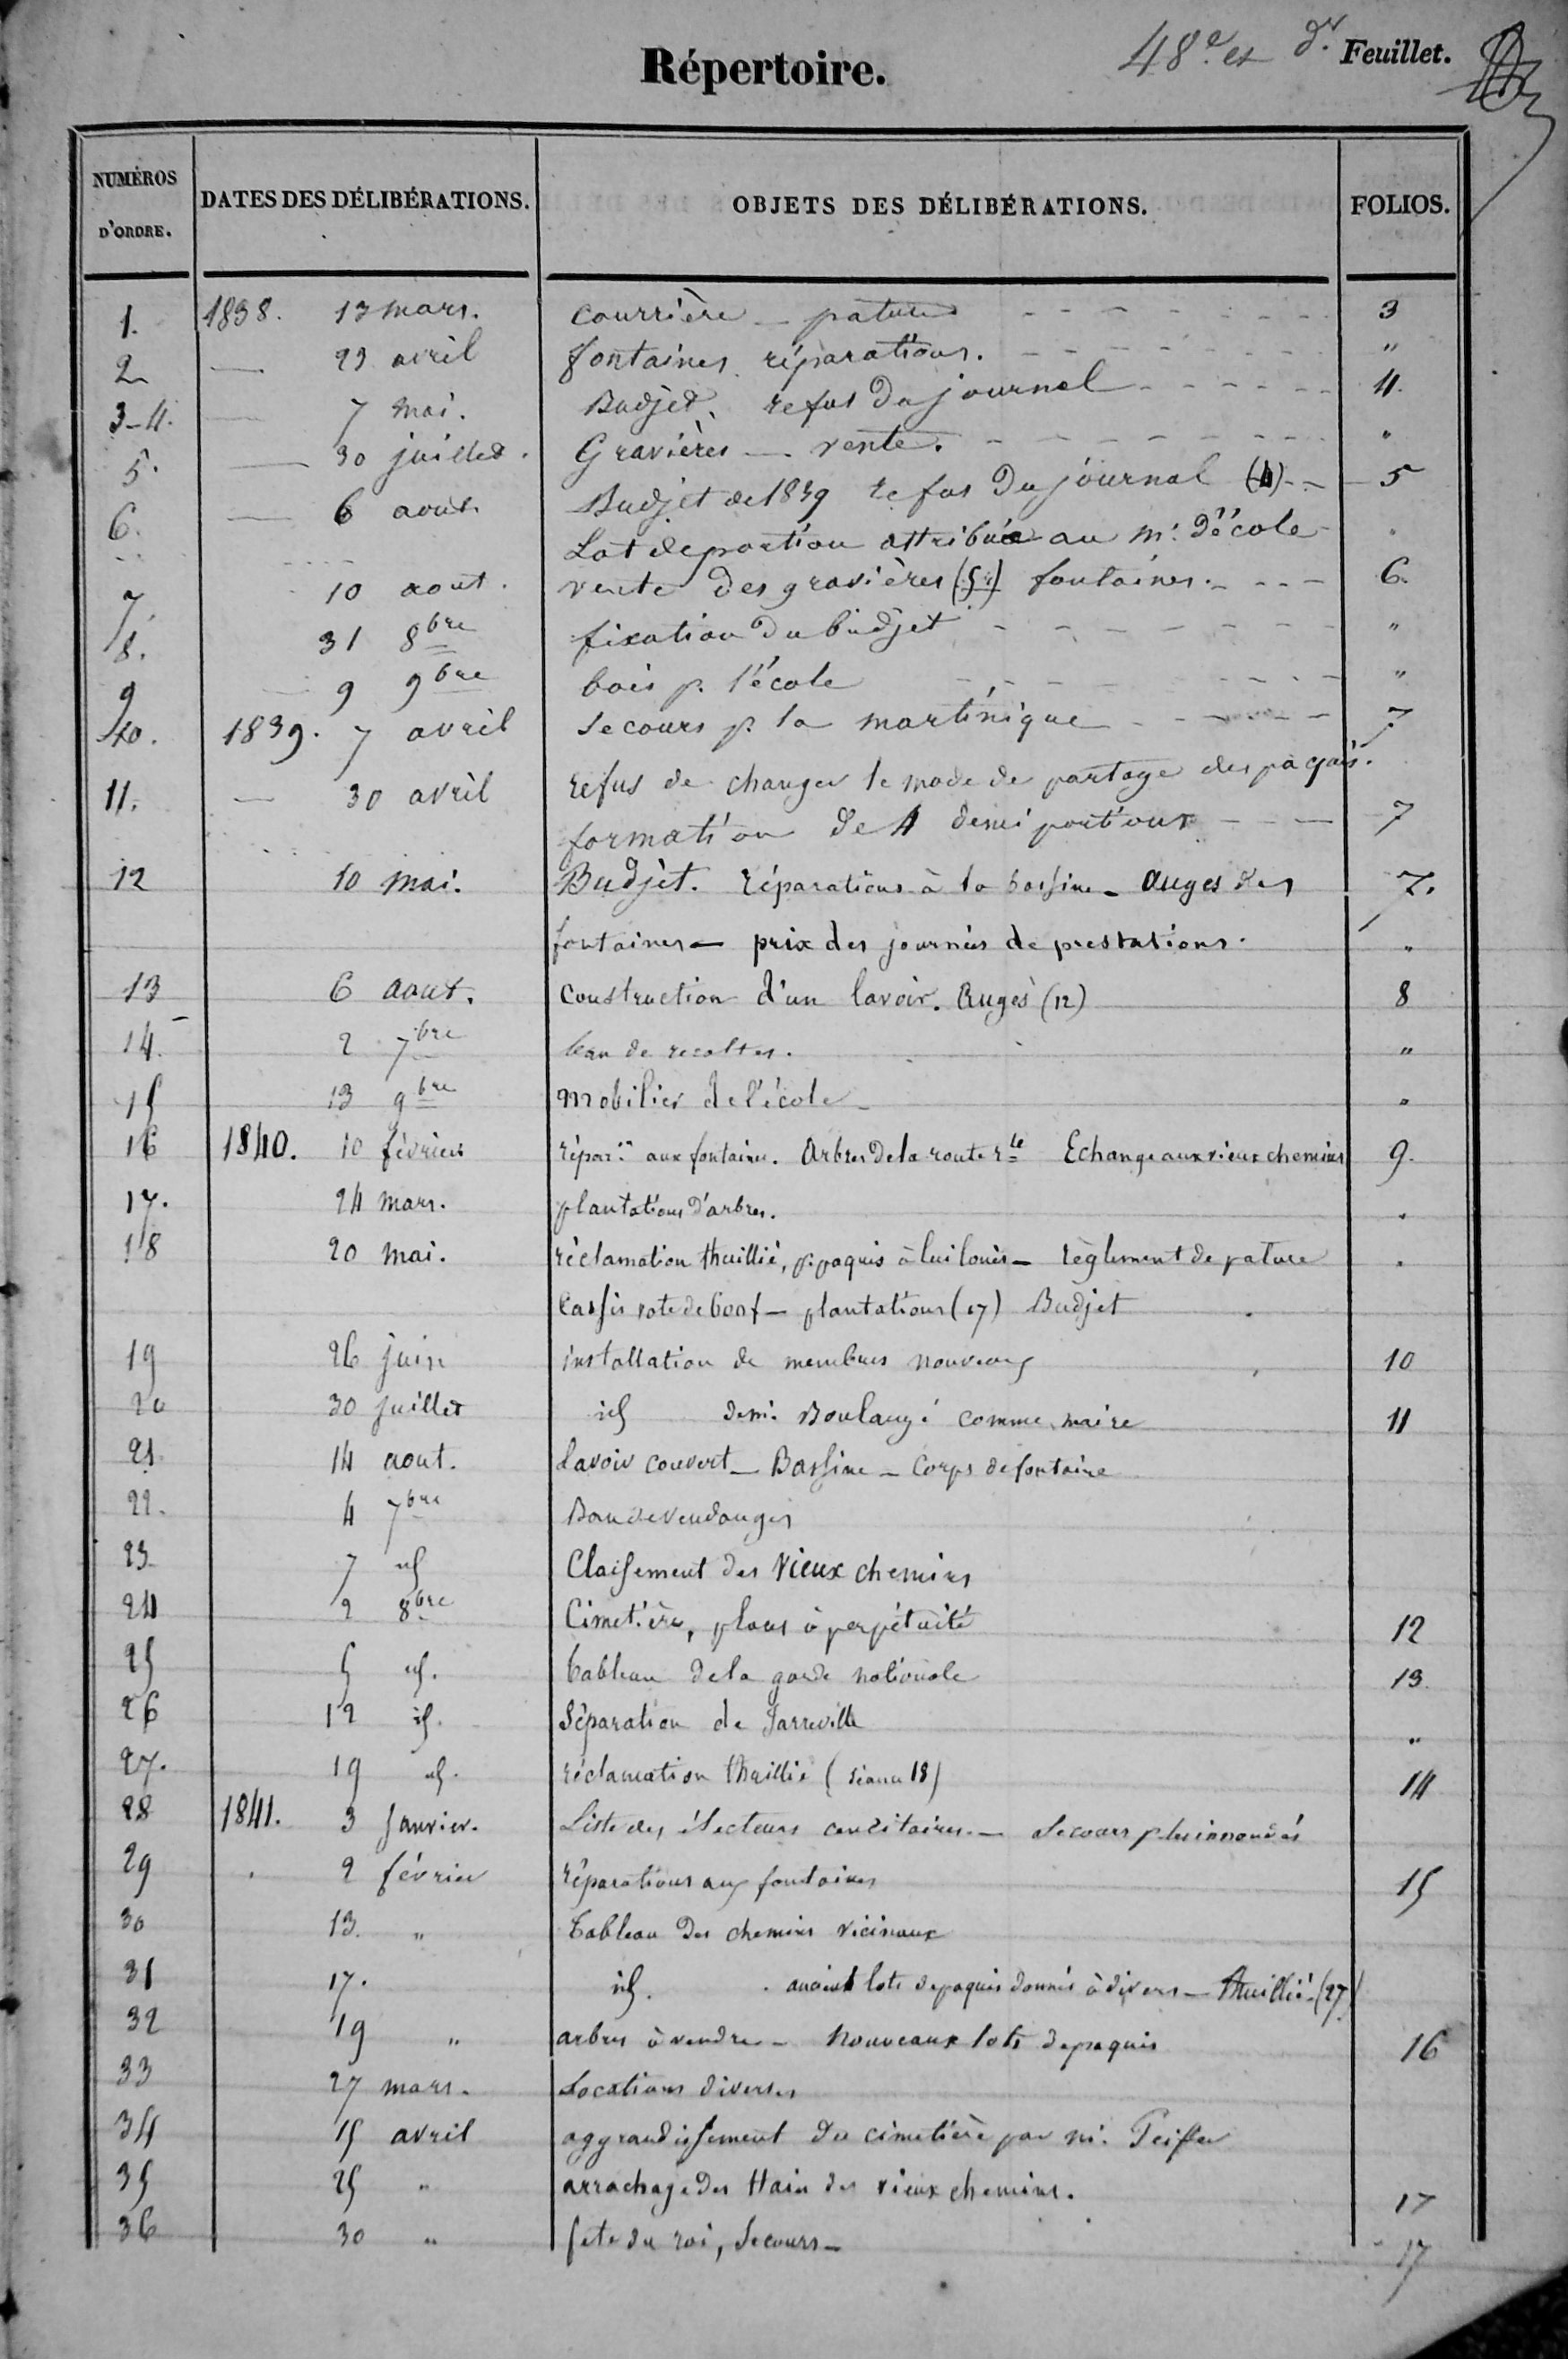 Répertoire.
48e. et dr. Feuillet.
NUMÉROS D'ORDRE. DATES DES DÉLIBÉRATIONS. OBJETS DES DÉLIBÉRATIONS. FOLIOS.
1. 1838. 13 mars. Courrière - pature 3
2 — 23 avril fontaines réparations. "
3-4. — 7 mai. Budjet, refus du journal 4.
5. — 30 juillet. Gravières — vente. "
6. — 6 aout. Budjet de 1839 refus du journal (4) 5
Lot de portion attribué au m. d'école "
7. 10 aout. vente des gravières (5) fontaines. 6.
8. 31 8bre fixation du budjet "
9 9 9bre bois p. l'école "
10. 1839. 7 avril secours p. la martinique 7
11. — 30 avril refus de changer le mode de partage des paquis.
formation de 4 demi portions 7
12 10 mai. Budjèt. réparations à la bassine - auges des 7.
fontaines — prix des journées de prestations. "
13 6 aout. Construction d'un lavoir. Auges (12) 8
14. 2 7bre ban de recoltes. "
15 13 9bre Mobilier de l'école "
16 1840. 10 février répar.ns aux fontaines. Arbres de la route rle Echange aux vieux chemins 9.
17. 24 mars. plantations d'arbres. "
18 20 mai. réclamation thuillié, p. paquis à lui loués — règlement de pature "
Cassis vote de 600f — plantations (17) Budjet
19 26 juin installation de membres nouveaux 10
20 30 juillet id de m. Boulangé comme maire 11
21 14 aout. Lavoir couvert — Bassine — Corps de fontaine
22. 4 7bre Ban de vendanges
23 7 id Classement des vieux chemins
24 2 8bre Cimetière, places à perpétuité 12
25 5 id. tableau de la garde nationale 13
26 12 id. Séparation de Jarreville "
27. 19 id. réclamation thuillié (séance 18) 14
28 1841. 3 Janvier. Liste des électeurs censitaires. — Secours p les innondés
29 2 février réparations aux fontaines 15
30 13. " Tableau des chemins vicinaux
31 17. id. anciens lots de paquis donnés à divers — thuillié (27)
32 19 " arbres à vendre - Nouveaux lots de paquis 16
33 27 mars. Locations diverses
34 15 avril aggrandissement du cimetière par m. Peiffer
35 25 " arrachage des haies des vieux chemins. 17
36 30 " fete du roi, Secours - 17